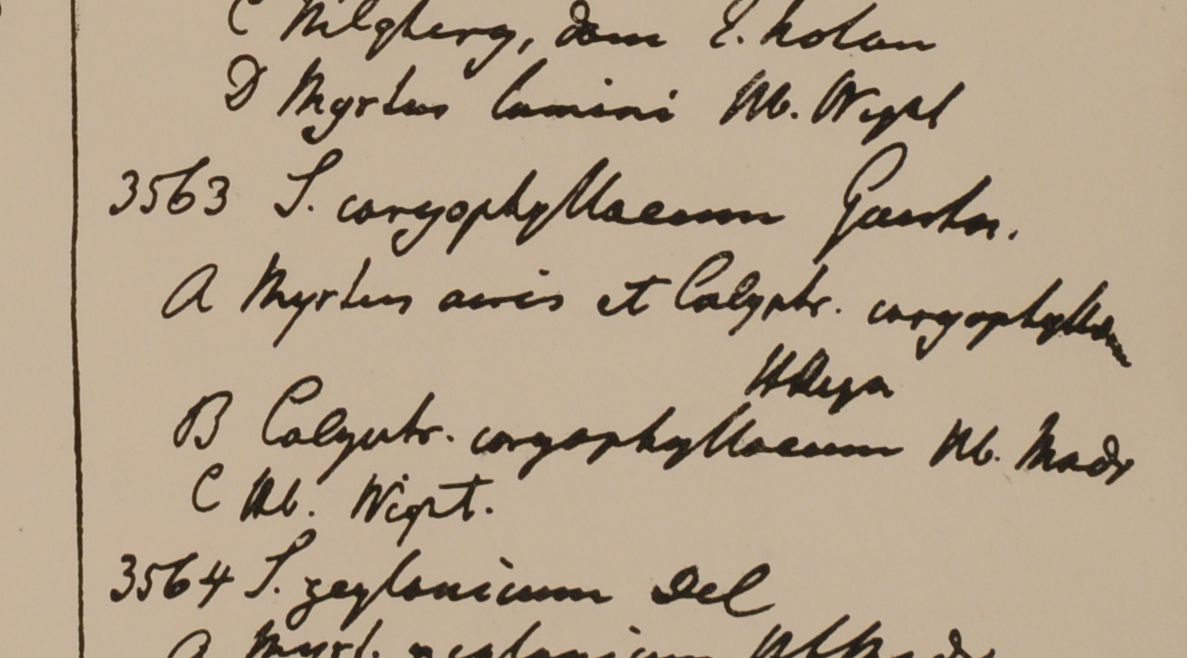 C Nilghery, dom E. Nolan
D Myrtus Cumini Hb. Wight
3563 S. caryophyllaeum Gaertn.
A Myrtus avis et Calyptr. caryophyllaea
B Calyptr. caryophyllaeum Hb. Madr
C Hb. Wight.
3564 S. zeylanicum Del
A Myrt. zeylanicum Hb Madr